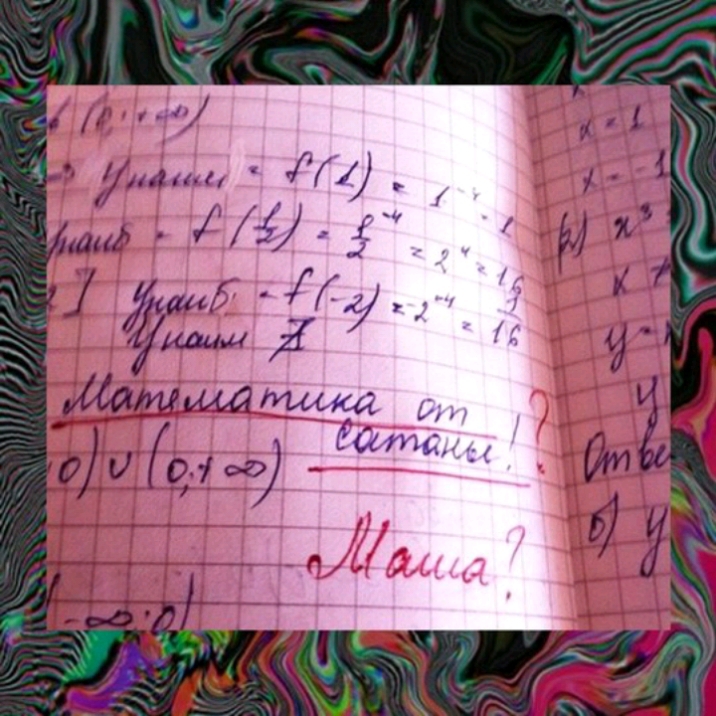 (0; +∞)
⇒ Унаим = f(1) = 1⁻⁴ = 1
Унаиб = f(1/2) = 1/2⁻⁴ = 2⁴ = 16
Унаиб. = f(-2) = -2⁻⁴ = 1/16
Унаим ∄
Математика от
сатаны! ?
0) ∪ (0; +∞)
Маша?
-∞; 0)
x = 1
x = -1
x³
x
y =
y
Отве
б) y